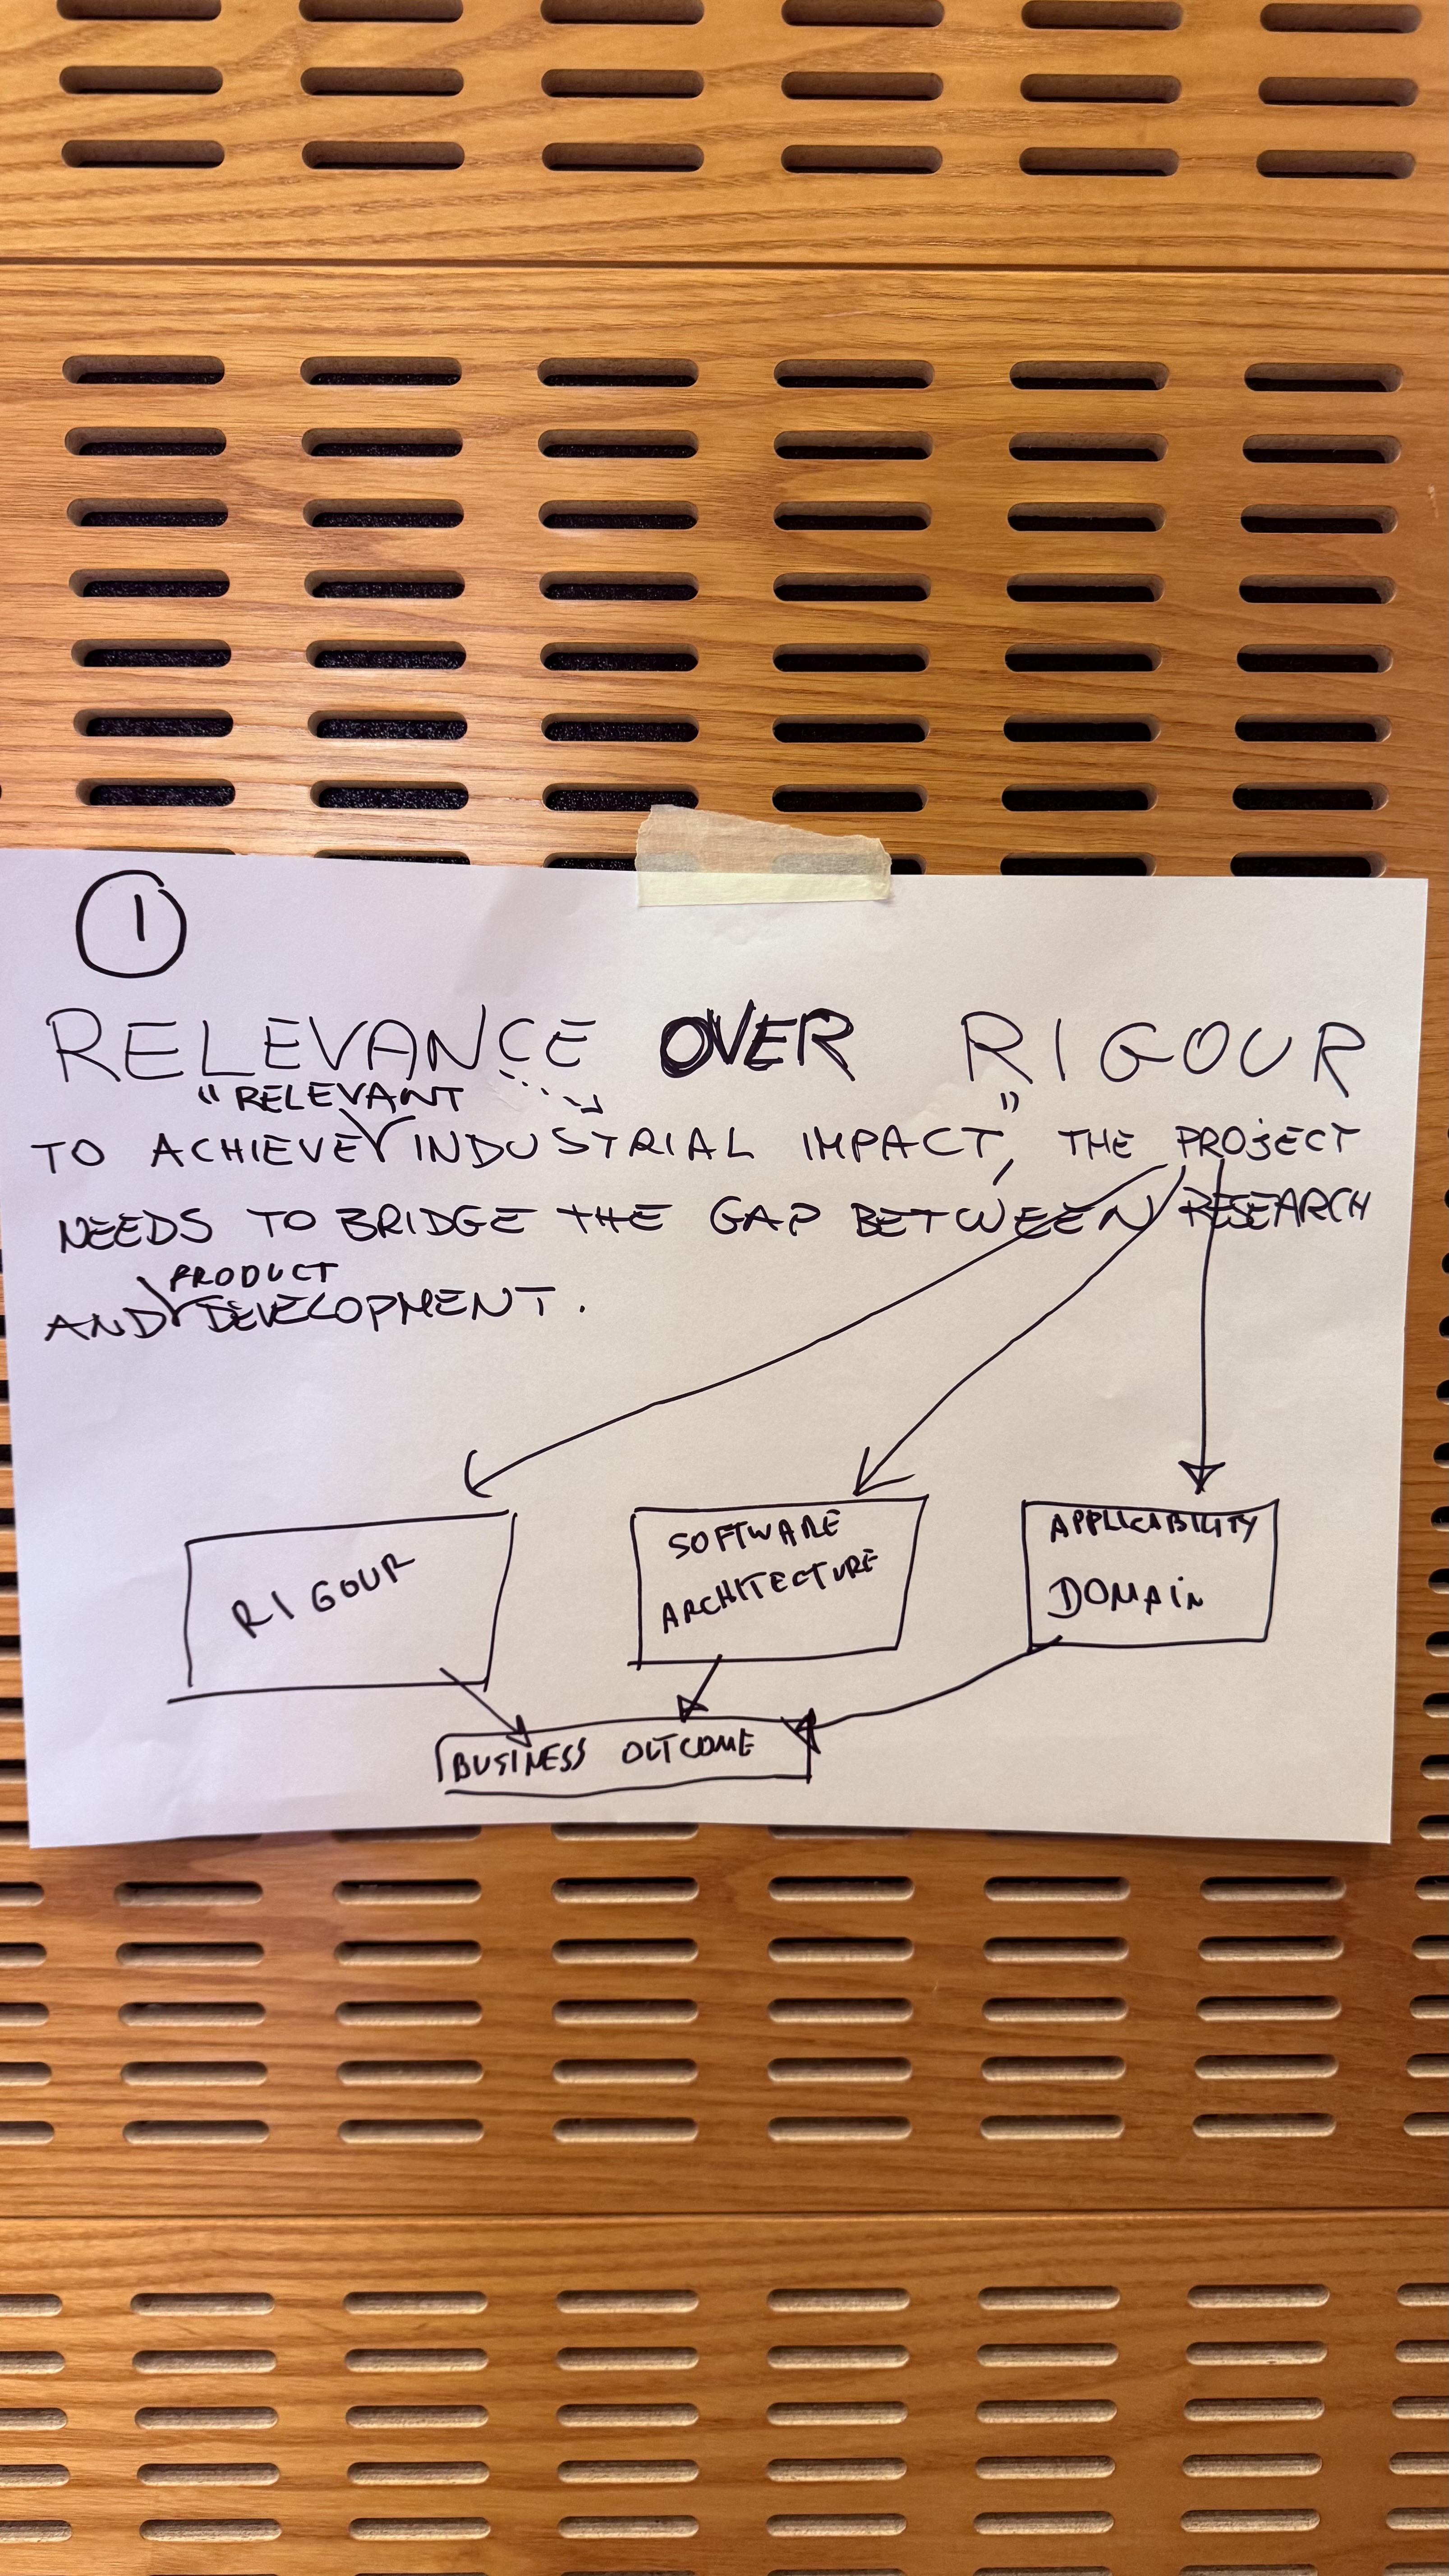 1
RELEVANCE OVER RIGOUR
"RELEVANT
TO ACHIEVE INDUSTRIAL IMPACT", THE PROJECT
NEEDS TO BRIDGE THE GAP BETWEEN RESEARCH
PRODUCT
AND DEVELOPMENT.
RIGOUR
SOFTWARE
ARCHITECTURE
APPLICABILITY
DOMAIN
BUSINESS OUTCOME